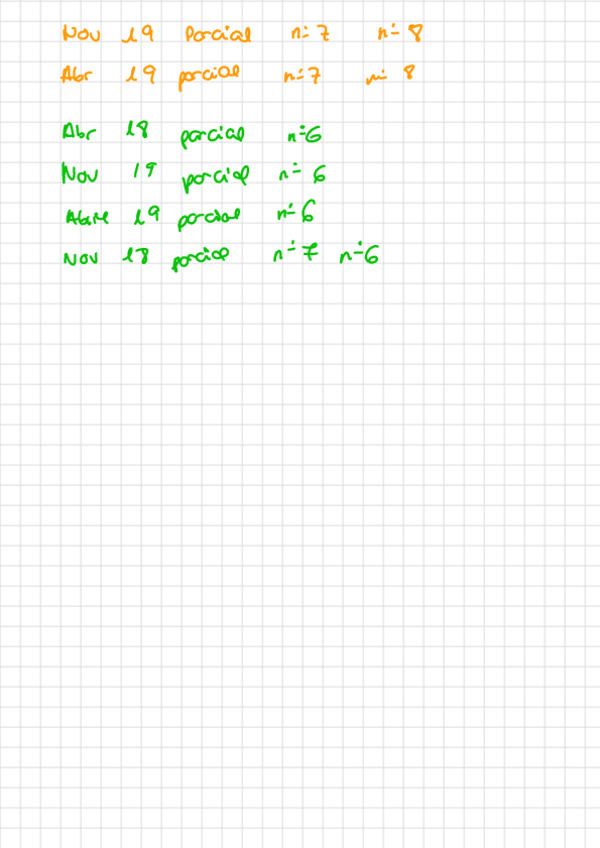 Nov 19 Parcial n=7 n=8
Abr 19 parcial n=7 n= 8
Abr 18 parcial n=6
Nov 19 parcial n= 6
Abril 19 parcial n=6
Nov 18 parcial n=7 n=6